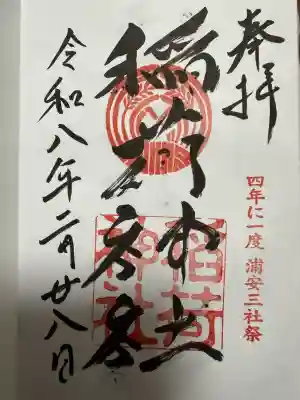 奉拝
四年に一度 浦安三社祭
稲荷
稲荷
神社
令和八年二月廿八日